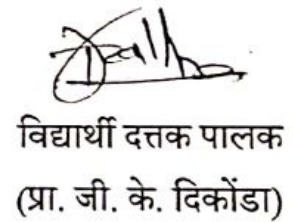 विद्यार्थी दत्तक पालक
(प्रा. जी. के. दिकोंडा)